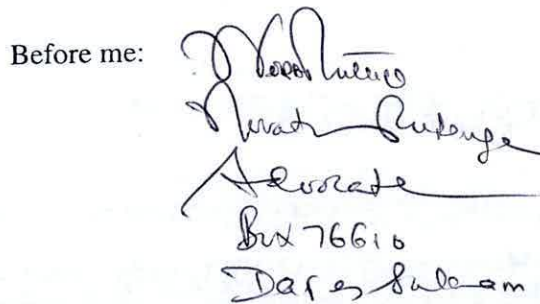 Before me:
Rutenge
Advocate
Box 76610
Dar es Salaam